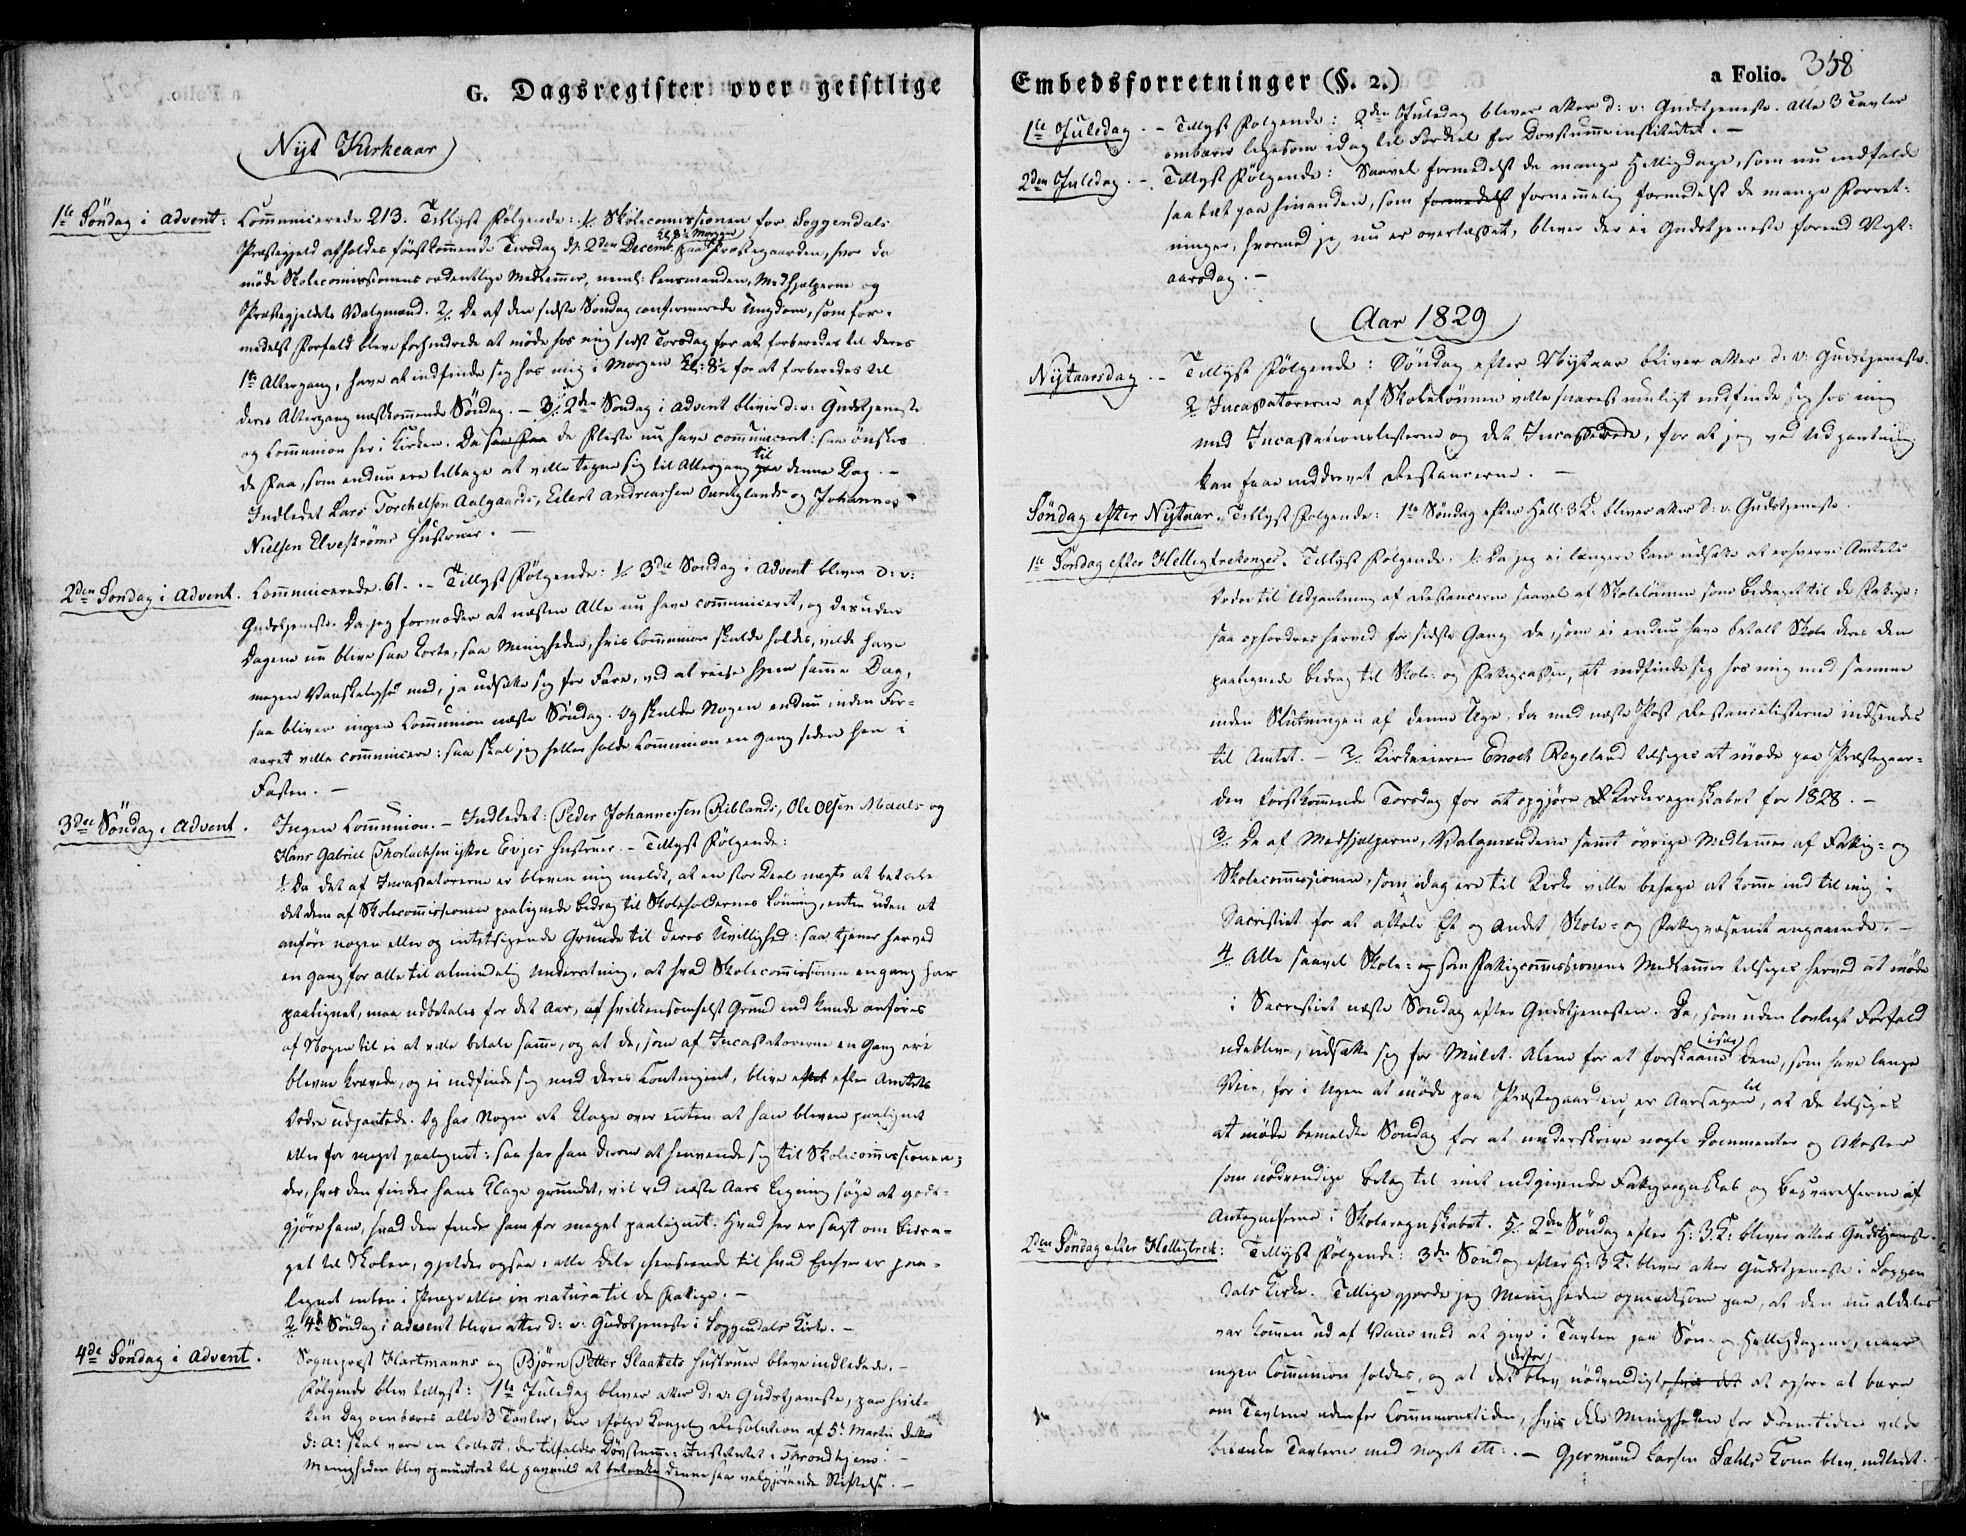 G. Dagsregister over geistlige
Nyt Kirkeaar
1te Söndag i Advent: Communicerede 213. Tillyst Følgende: 1/ Skolecomissionen for Soggendals
Kl. 8½ Morgen
Præstegjeld afholdes förstkommende Tirsdag d: 2den Decemb. paa Præstegaarden, hvor de
møde Skolecomissionens ordentlige Medlemmer, neml: Lensmanden, Medhjelperne og
Præstegjeldets Valgmænd. 2/ De af den sidste Søndag confirmerede Ungdom, som for-
medelst Forfald bleve forhindrede at møde hos mig sidst Torsdag for at forberedes til deres
1te Altergang, have at indfinde sig hos mig i Morgen Kl: 8½ for at forberedes til
deres Altergang næstkommende Söndag. – 3/ 2den Søndag i Advent bliver d: v: Gudstjeneste
og Communion her i Kirken. Da de Fleste nu have communiceret: saa ønskes
til
de Faa, som endnu ere tilbage at ville tegne sig til Altergang paa denne Dag. –
Indledet Lars Torchelsen Aalgaards, Eilert Andreassen Ourdglands og Johannes
Nielsen Elvestrøms Hustruer. –
2den Søndag i Advent. Communicerede 61. – Tillyst Følgende: 1/ 3die Søndag i Advent bliver d: v:
Gudstjeneste. Da jeg formoder at næsten Alle nu have communiceret, og desuden
Dagene nu blive saa korte, saa Menigheden, hvis Communion skulde holdes, vilde have
megen Vanskelighed med, ja udsætte sig for Fare, ved at reise hjem samme Dag,
saa bliver ingen Communion næste Söndag. Og skulde Nogen endnu inden For-
aaret ville communicere: saa skal jeg heller holde Communion en Gang siden hen i
Fasten. –
3die Söndag i Advent. Ingen Communion. – Indledet: Peder Johannesen Riblands, Ole Olsen Moaals og
Hans Gabriel Thorlachsen Evjes Hustruer. – Tillyst Følgende:
1/ Da det af Incassatorerne er bleven mig meldt, at en stor Deel negte at betale
det dem af Skolecomissionen paalignede Bidrag til Skoleholdernes Lönning, enten uden at
anføre nogen eller og intetsigende Grunde til deres Uvillighed: saa tjener herved
en Gang for alle til almindelig Underretning, at hvad Skolecomissionen engang har
paalignet, maa udbetales for det Aar, af hvilkensomhelst Grund end kunde anføres
af Nogen til ei at ville betale samme, og at de, som af Incassatorerne en Gang ere
blevne krævede, og ei indfinde sig med deres Contingent, blive efter Amtets
Ordre udpantede. Og har Nogen at klage over enten at han bliven paalignet
eller for meget paalignet: saa har han derom at henvende sig til Skolecomissionen;
der, hvis den finder hans Klage grundet, vil ved næste Aars Ligning søge at godt-
gjöre ham, hvad den finder ham for meget paalignet. Hvad her er sagt om Bidra-
get til Skolen, gjelder ogsaa i alle Dele henseende til hvad Enhver er paa-
lignet enten i Penge eller in natura til de Fattige. –
2/ 4de Søndag i Advent bliver atter d: v: Gudstjeneste i Soggendals Kirke. –
4de Söndag i Advent. Sognepræst Hartmanns og Bjørn Petter Slaattets Hustruer bleve indledede. –
Følgende blev tillyst: 1te Juledag bliver atter d: v: Gudstjeneste, paa hvil-
ken Dag ombæres alle 3 Tavler, der ifølge Kongelig Resolution af 5te Martii dette
d: A: skal være en Collect, der tilfalder Døvstumme-Institutet i Trondhjem. –
Menigheden blev opmuntret til gavmild at betænke denne saa velgjørende Stiftelse. –
Embedsforretninger (§. 2.)
a Folio. 358
1te Juledag. – Tillyst Følgende: 2den Juledag bliver atter d: v: Gudstjeneste. Alle 3 Tavler
ombæres ligesom idag til Fordeel for Dovstummeinstitutet. –
2den Juledag. – Tillyst Følgende: Saavel formedelst de mange Helligdage, som nu indfalde
saa tæt paa hinanden, som formedelst fornemmelig formedelst de mange Forret-
ninger, hvormed jeg nu er overlæsset, bliver der ei Gudstjeneste forend Nyt-
aarsdag. –
Aar 1829
Nytaarsdag. – Tillyst Følgende: Søndag efter Nytaar bliver atter d: v: Gudstjeneste.
2 Incassatorerne af Skolelönnen ville snarest muligt indfinde sig hos mig
med Incassationslisterne og det Incasserede, for at jeg ved Udpantning
kan faae inddrevet Restancerne. –
Söndag efter Nytaar. Tillyst Følgende: 1te Søndag efter Hell: 3 K. bliver atter d: v: Gudstjeneste.
1te Søndag efter Helligtrekonger. Tillyst Følgende. 1/ Da jeg ei længere kan udsætte at erhverve Amtets
Ordre til Udpantning af Restancerne saavel af Skolelönnen som Bidraget til de Fattige:
saa opfordres herved for sidste Gang de, som ei endnu have betalt det dem
paalignede Bidrag til Skole- og Fattigcassen, at indfinde sig hos mig med samme
inden Slutningen af denne Uge, da med næste Post Restancelisterne indsendes
til Amtet. – 2/ Kirkeeieren Enoch Regeland tilsiges at møde paa Præstegaar-
den förstkommende Torsdag for at opgjöre Kirkeregnskabet for 1828. –
3/ De af Medhjelperne, Valgmændene samt övrige Medlemmer af Fattig- og
Skolecomissionen, som idag ere til Kirke ville behage at komme ind til mig i
Sacristiet for at aftale Et og Andet Skole- og Fattigvæsenet angaaende. –
4 Alle saavel Skole- og som Fattigcommissionens Medlemmer tilsiges herved at møde
i Sacristiet næste Søndag efter Gudstjenesten. De, som uden lovligt Forfald
især
udeblive, udsætte sig for Mulct. Alene for at forskaane Dem, som have lange
til
Veie, for i Ugen at møde paa Præstegaarden, er Aarsagen, at de tilsiges
at møde bemeldte Søndag for at underskrive nogle Documenter og Attester
som nödvendige Bilag til mit indgivende Fattigregnskab og Besvarelserne af
Antegnelserne i Skoleregnskabet. 5/ 2den Søndag efter H: 3 K: bliver atter Gudstjeneste.
2den Søndag efter Helligtrek: Tillyst Følgende: 3die Søndag efter H: 3 K: bliver atter Gudstjeneste i Soggen
dals Kirke. Tillige gjorde jeg Menigheden opmærksom paa, at den nu aldeles
var kommen ud af Vane med at give i Tavlen paa Søn- og Helligdagene, naar
derfor
ingen Communion holdes, og at det blev nødvendigt hvis det at ophøre at bære
om Tavlene udenfor Communionstiden, hvis ikke Menigheden for Fremtiden vilde
betænke Tavlerne med noget etc. – Gjermund Larsen Sæhls Kone blev indledet.